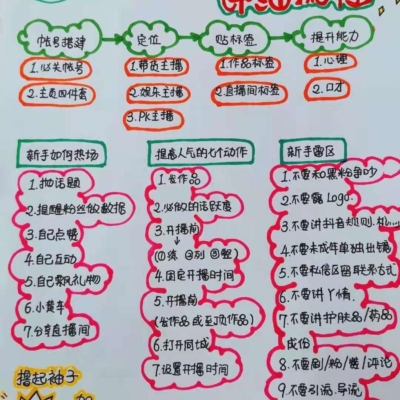 帐号搭建
定位
贴标签
提升能力
1.公关帐号
2.主页四件套
1.带货主播
2.娱乐主播
3.PK主播
1.作品标签
2.直播间标签
1.心理
2.口才
新手如何热场
1.抛话题
2.提醒粉丝做数据
3.自己点赞
4.自己互动
5.自己飘礼物
6.小黄车
7.分享直播间
提高人气的七个动作
1.发作品
2.你的活跃度
3.开播前
4.固定开播时间
5.开播前
(发作品或至顶作品)
6.打开同城
7.设置开播时间
新手雷区
1.不要和黑粉争吵
2.不要露Logo.
3.不要讲抖音规则.机
4.不要未成年单独出镜
5.不要私信区留联系方式
6.不要讲丫情.
7.不要讲护肤品/药品
成份
8.不要刷/粉/赞/评论
9.不要引流.导流
撸起袖子